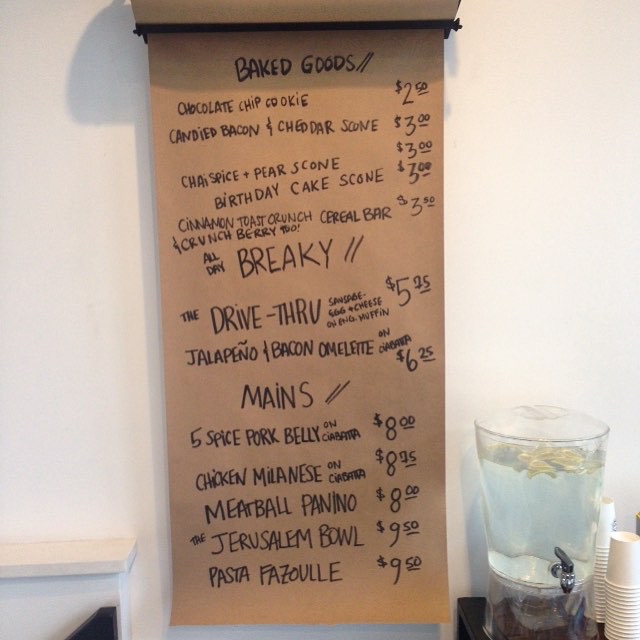 BAKED GOODS//
CHOCOLATE CHIP COOKIE $2.50
CANDIED BACON & CHEDDAR SCONE $3.00
CHAI SPICE + PEAR SCONE $3.00
BIRTHDAY CAKE SCONE $3.00
CINNAMON TOAST CRUNCH CEREAL BAR $3.50
& CRUNCH BERRY TOO!
ALL DAY BREAKY //
THE DRIVE-THRU SAUSAGE- EGG + CHEESE ON ENG. MUFFIN $5.75
JALAPEÑO & BACON OMELETTE ON CIABATTA $6.25
MAINS //
5 SPICE PORK BELLY ON CIABATTA $8.00
CHICKEN MILANESE ON CIABATTA $8.75
MEATBALL PANINO $8.00
THE JERUSALEM BOWL $9.50
PASTA FAZOULLE $9.50